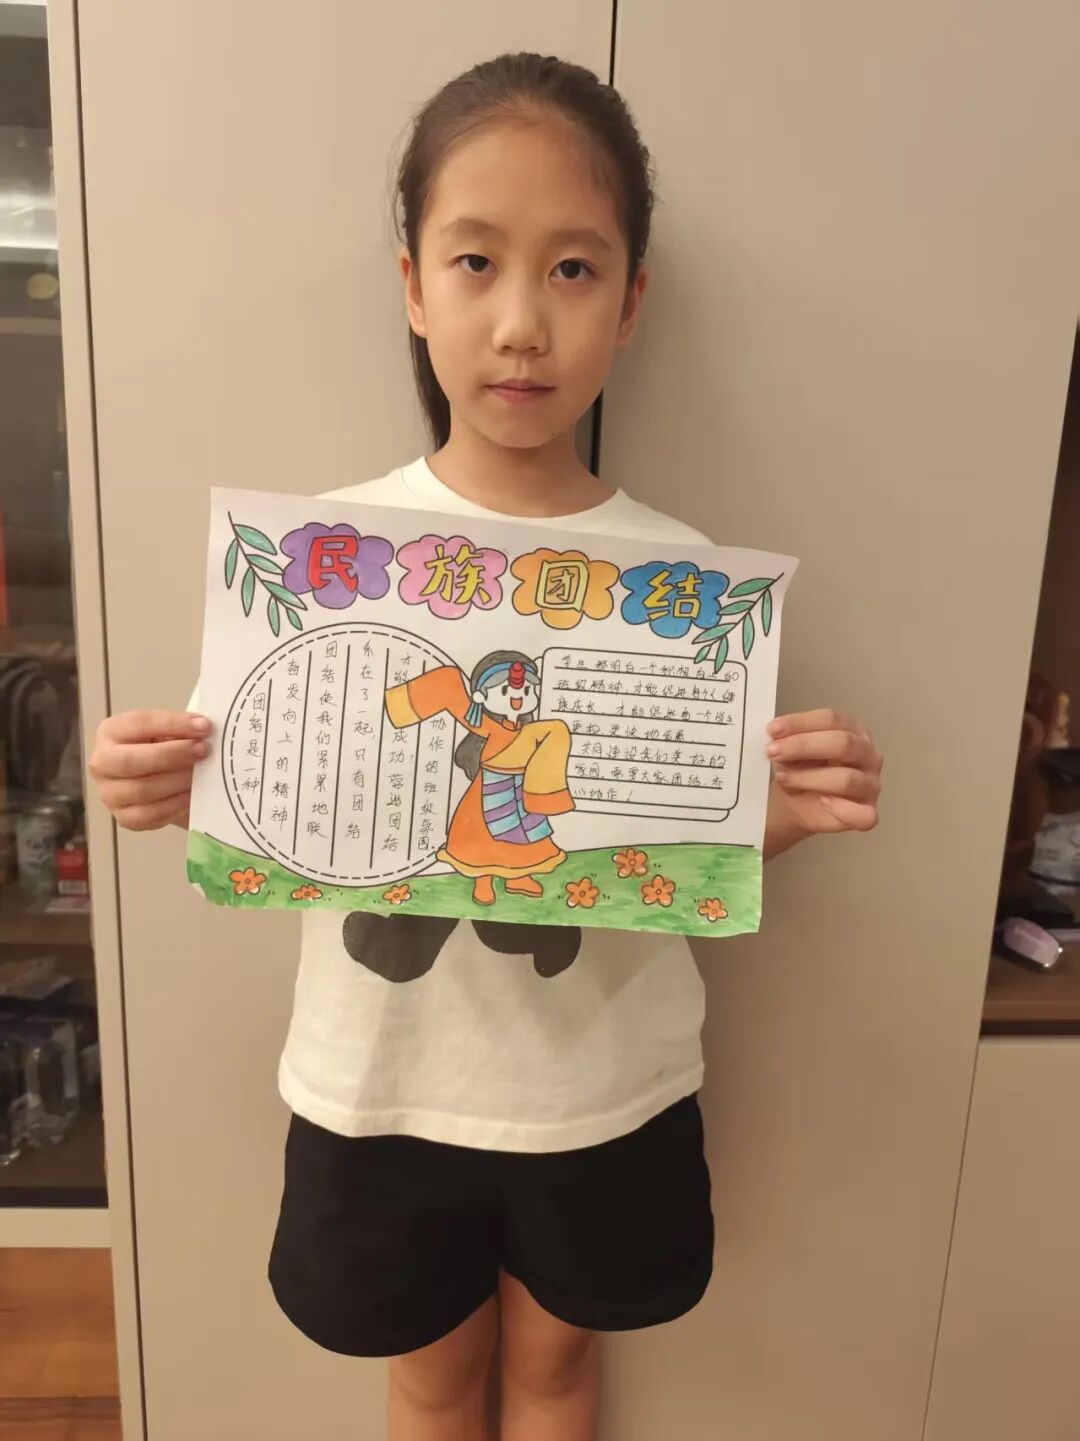 民族团结
团结是一种
奋发向上的精神
团结使我们紧紧地联
系在了一起,只有团结
才能成功!营造团结
协作的班级氛围。
学生都明白一个积极向上的
班级精神,才能促进每个人健
康成长,才能促进每一个学生
更好,更快地发展。
共同建设我们美好的
家园,需要大家团结,齐
心协作!